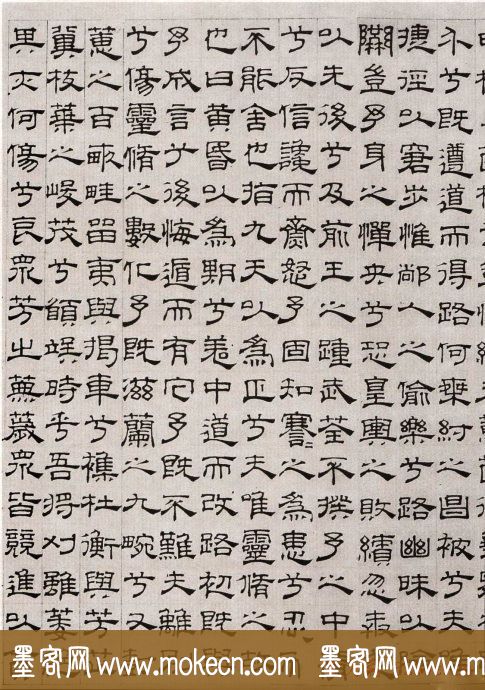 兮既遵道而得路何桀紂之昌被兮夫
捷徑以窘步惟人之偷樂兮路幽昧以險
隘豈予身之憚央兮恐皇輿之敗績忽奔
以先後兮及前王之踵武荃不揆予之中
兮反信讒而齌怒予固知謇〻之為患兮忍
不能舍也指九天以為正兮夫唯靈脩之故
也曰黃昏以為期兮羌中道而改路初既與
予成言兮後悔遁而有它予既不難夫離
兮傷靈脩之數化予既滋蘭之九畹兮又
蕙之百畝畦留夷與揭車兮雜杜衡與芳
冀枝葉之峻茂兮願竢時乎吾將刈雖萎
夫何傷兮哀眾芳之蕪薉眾皆競進以
墨客网 www.mokecn.com 墨客网 www.mokecn.com